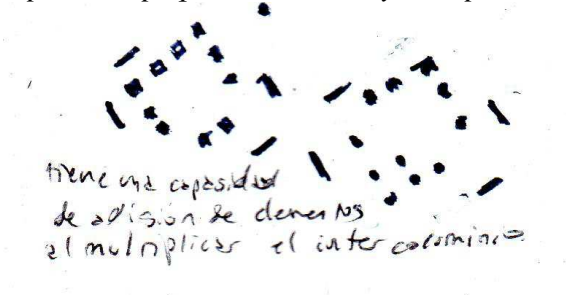 tiene una capasidad
de adision de elementos
al multiplicar el intercolumnio